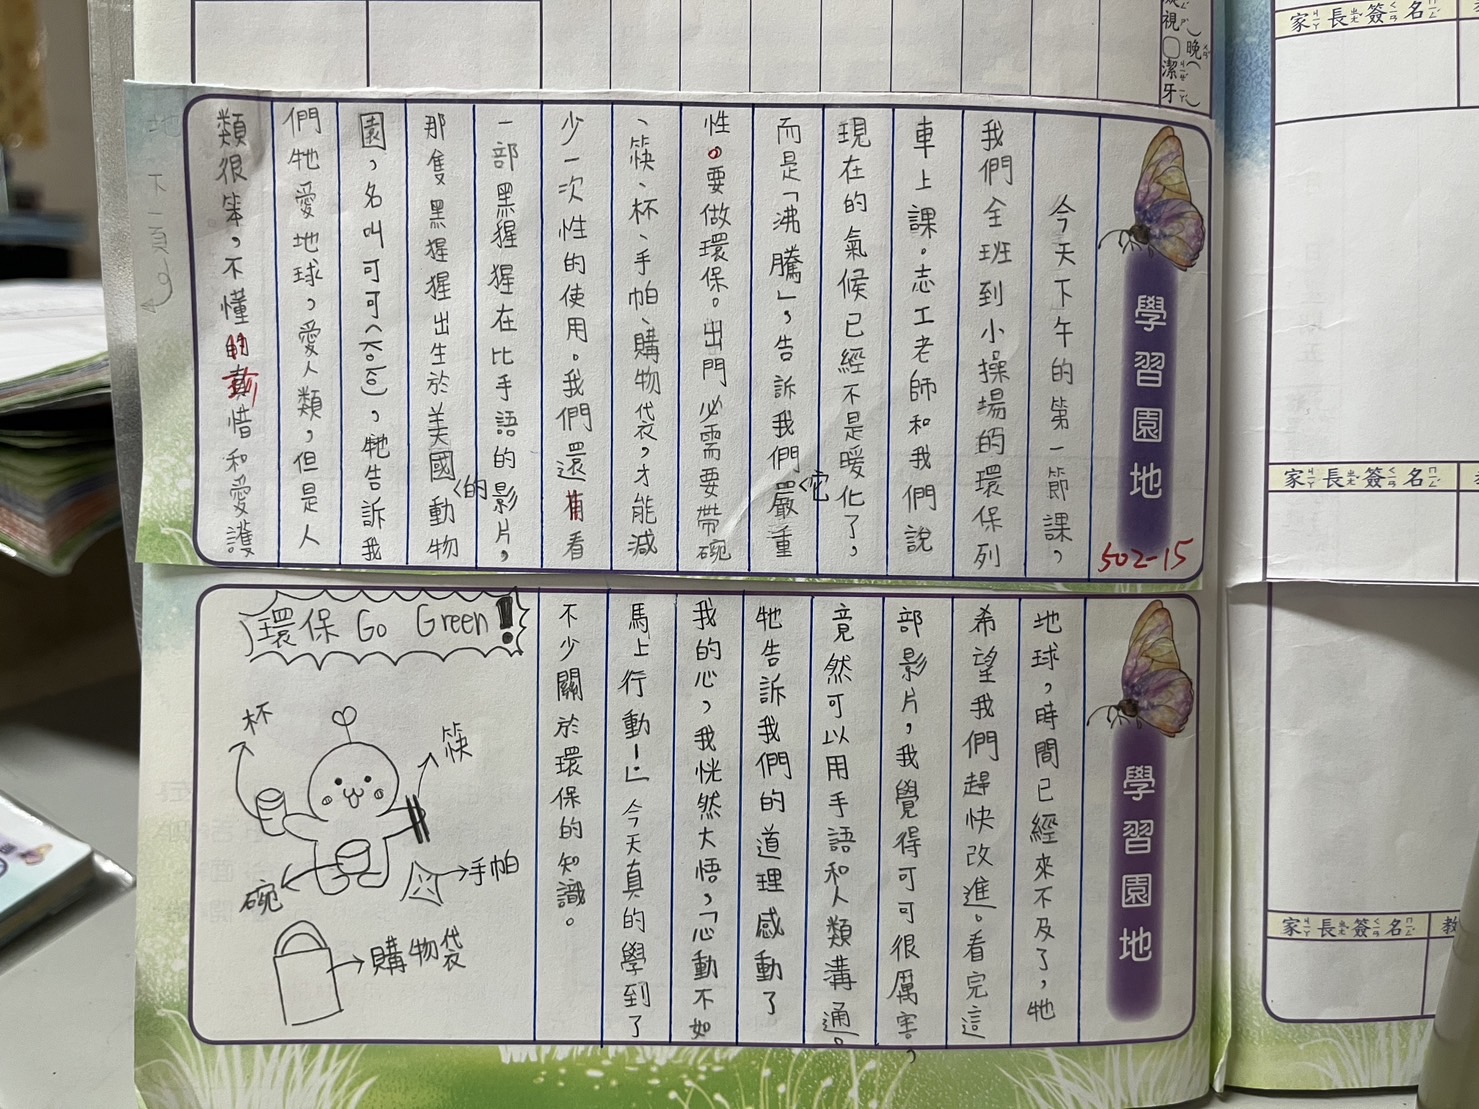 學習園地
502-15
今天下午的第一節課，
我們全班到小操場的環保列
車上課。志工老師和我們說
現在的氣候已經不是暖化了，
而是「沸騰」，告訴我們它嚴重
性。要做環保。出門必需要帶碗
、筷、杯、手帕、購物袋，才能減
少一次性的使用。我們還有看
一部黑猩猩在比手語的影片，
那隻黑猩猩出生於美國的動物
園，名叫可可(Koko)，牠告訴我
們牠愛地球，愛人類，但是人
類很笨，不懂的珍惜和愛護
地
下一頁
學習園地
地球，時間已經來不及了，牠
希望我們趕快改進。看完這
部影片，我覺得可可很厲害，
竟然可以用手語和人類溝通。
牠告訴我們的道理感動了
我的心，我恍然大悟，「心動不如
馬上行動！」今天真的學到了
不少關於環保的知識。
環保 Go Green!
杯
筷
碗
手帕
購物袋
視
晚
潔
牙
家ㄐㄧㄚ長ㄓㄤˇ簽ㄑㄧㄢ名ㄇㄧㄥˊ
家ㄐㄧㄚ長ㄓㄤˇ簽ㄑㄧㄢ名ㄇㄧㄥˊ
家ㄐㄧㄚ長ㄓㄤˇ簽ㄑㄧㄢ名ㄇㄧㄥˊ
教